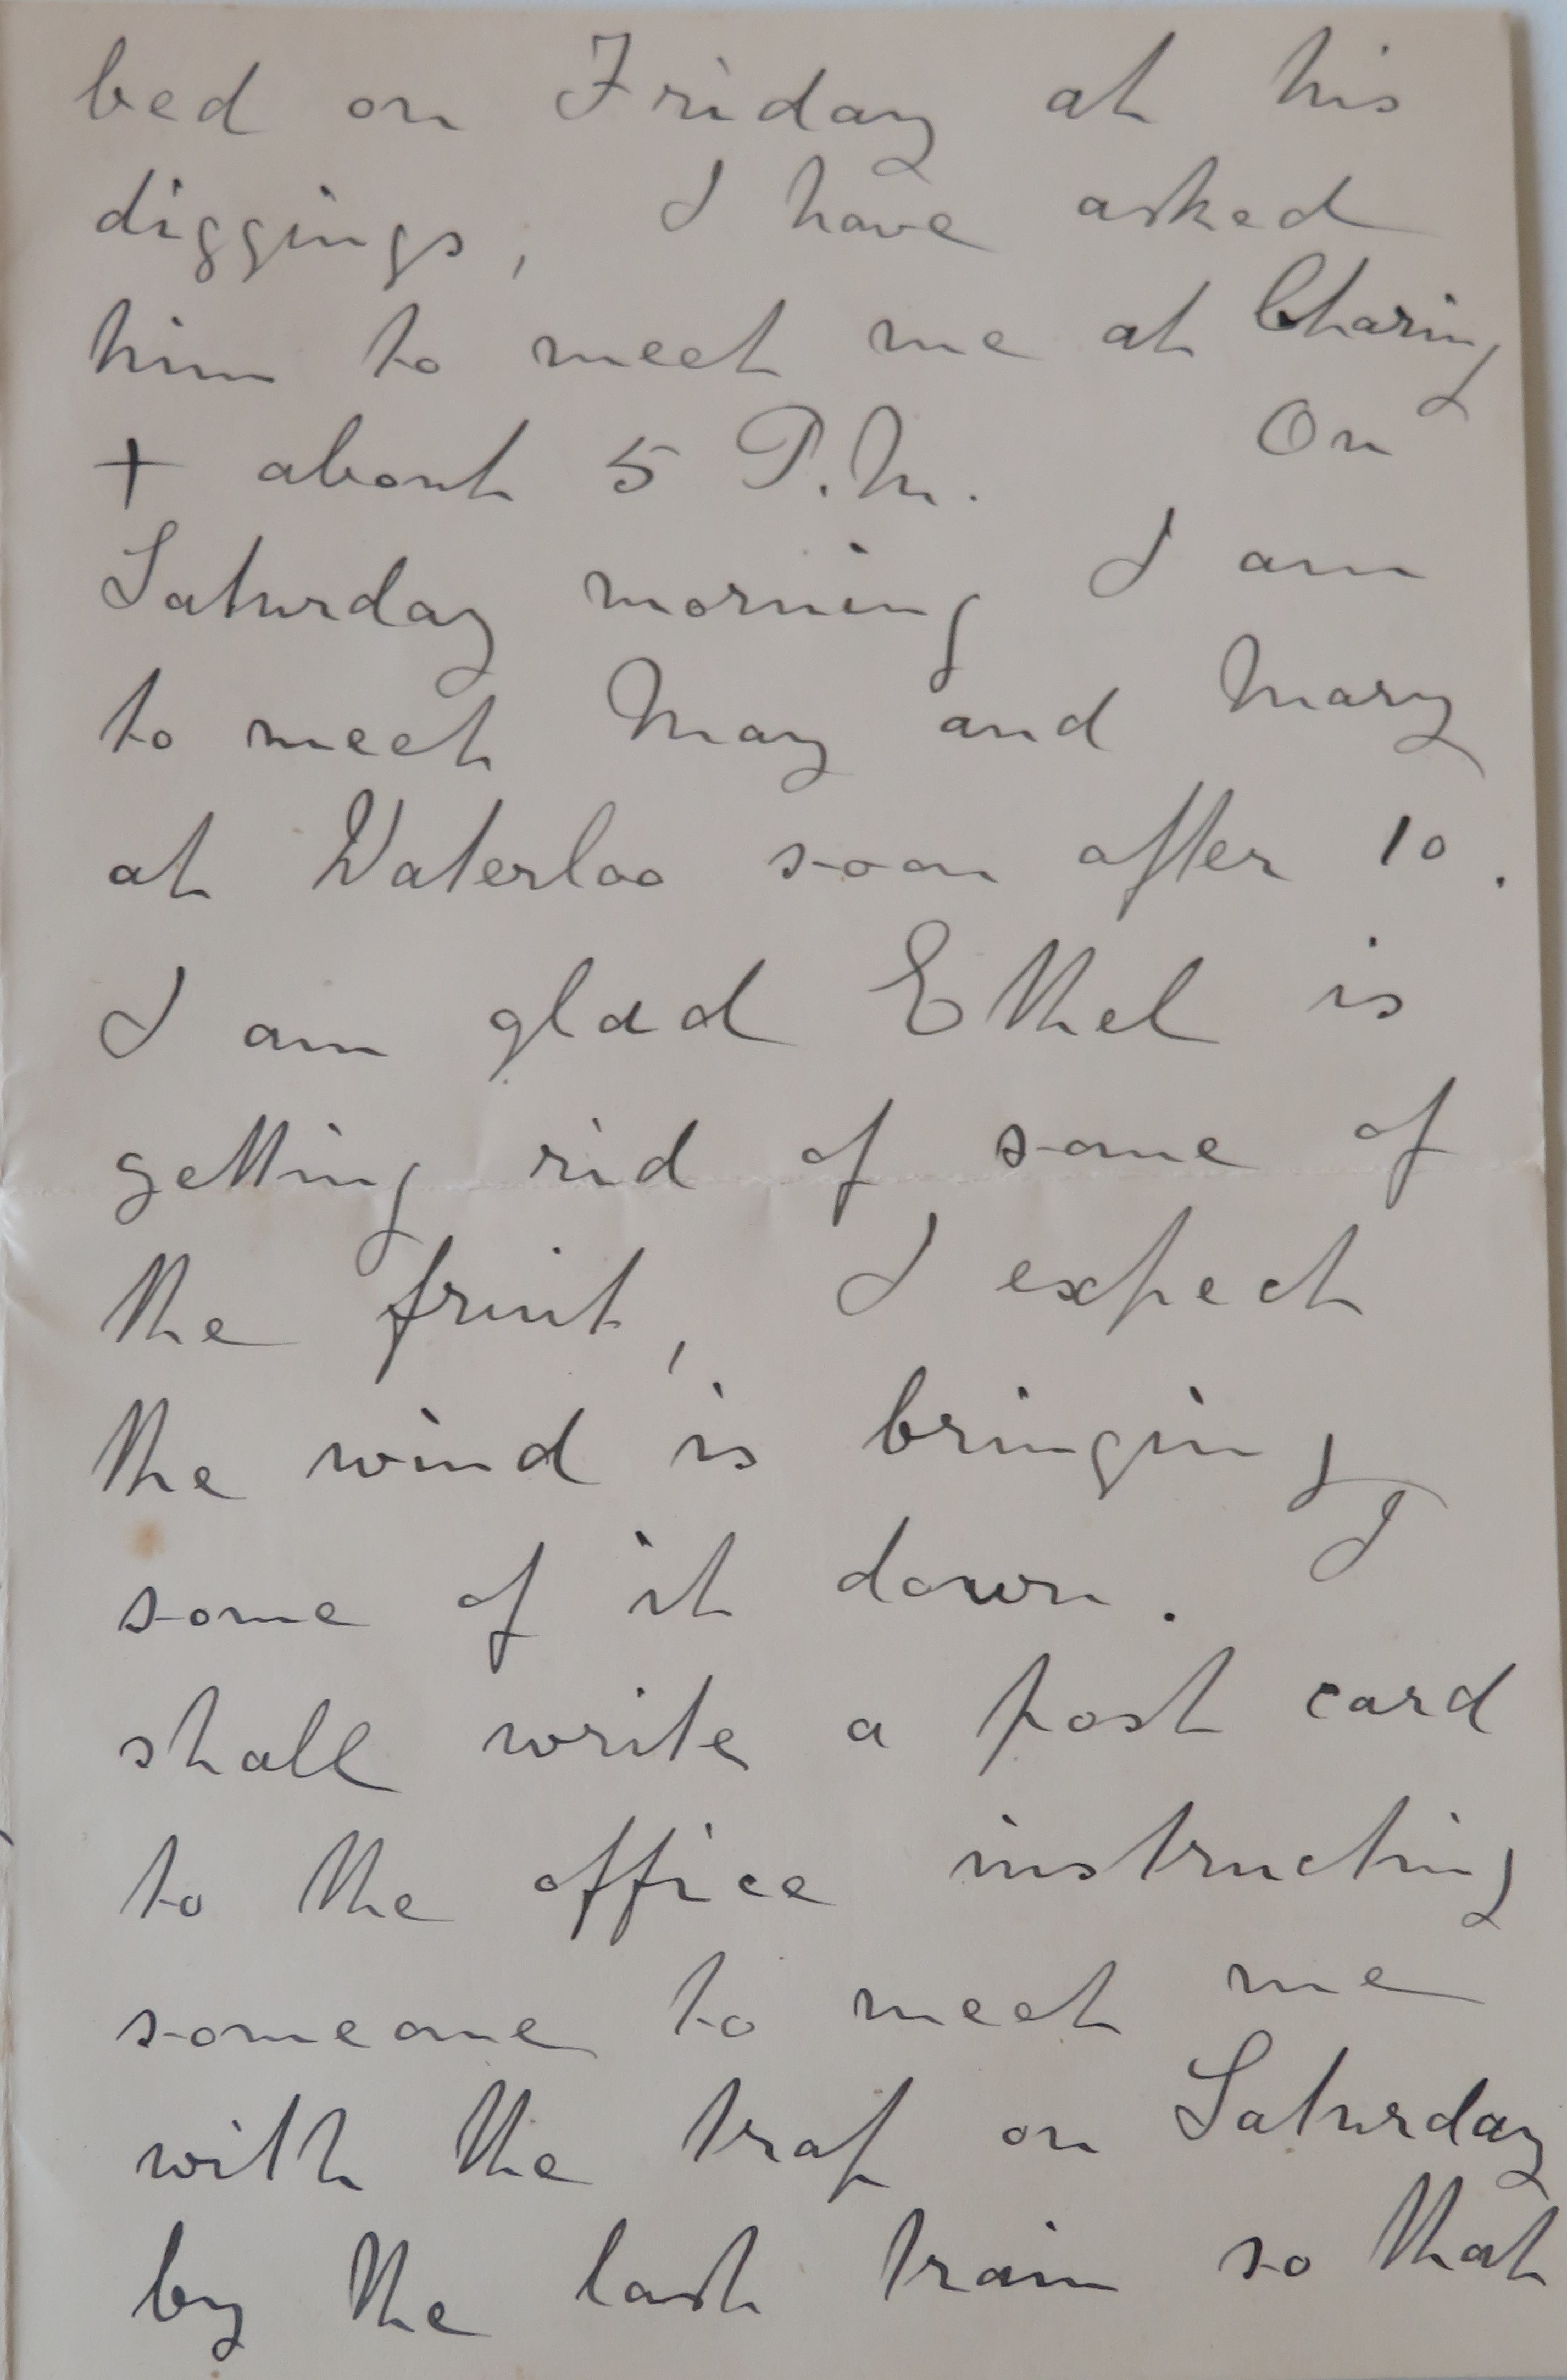 bed on Friday at his
diggings, I have asked
him to meet me at Charing
+ about 5 P.M. On
Saturday morning I am
to meet May and Mary
at Waterloo soon after 10.
I am glad Ethel is
getting rid of some of
the fruit, I expect
the wind is bringing
some of it down. I
shall write a post card
to the office instructing
someone to meet me
with the trap on Saturday
by the last train so that